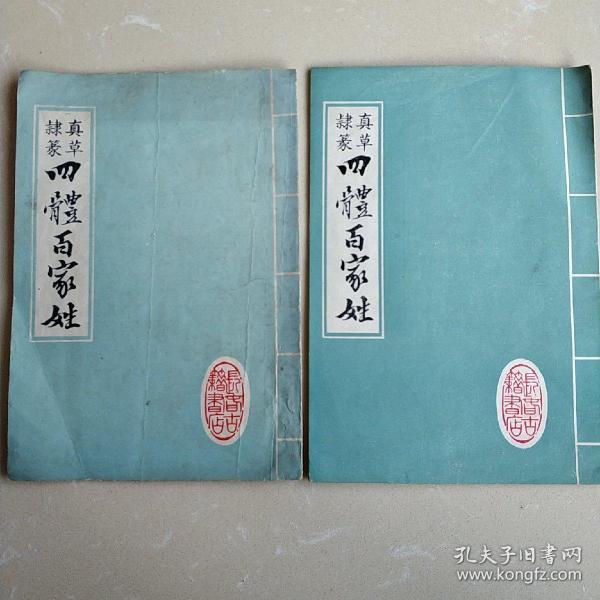 真草
隸篆
四體百家姓
長春古
籍書店
真草
隸篆
四體百家姓
長春古
籍書店
孔夫子旧书网
www.kongfz.com